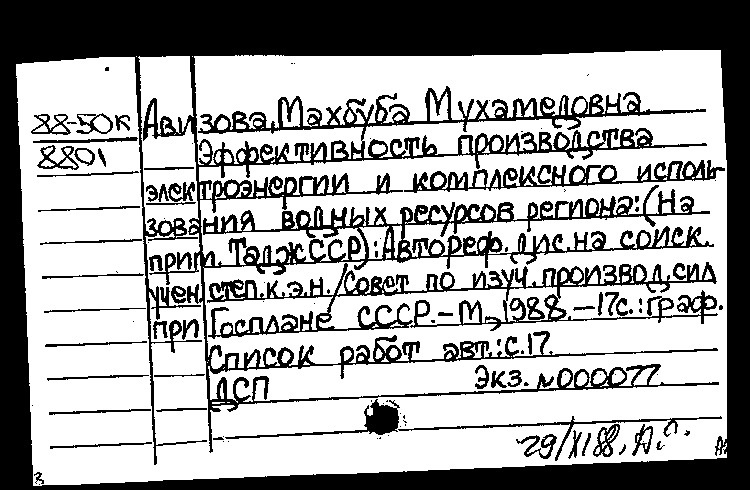 88-50к Авизова, Махбуба Мухамедовна
8801 Эффективность производства
электроэнергии и комплексного исполь-
зования водных ресурсов региона: (На
прим. ТаджССР): Автореф. дис. на соиск.
учен. степ. к.э.н. / Совет по изуч. производ. сил
при Госплане СССР. - М., 1988. - 17с.: граф.
Список работ авт.: с. 17.
ДСП Экз. №000077.
29/XI 88,